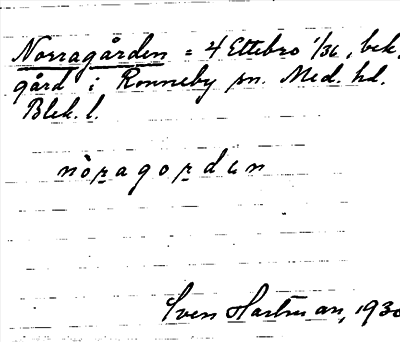 Norragården = 4 Ettebro 1/36, bek.
gård i Ronneby sn. Med. hd.
Blek. l.
nòragordɩn
Sven Hartman, 1930